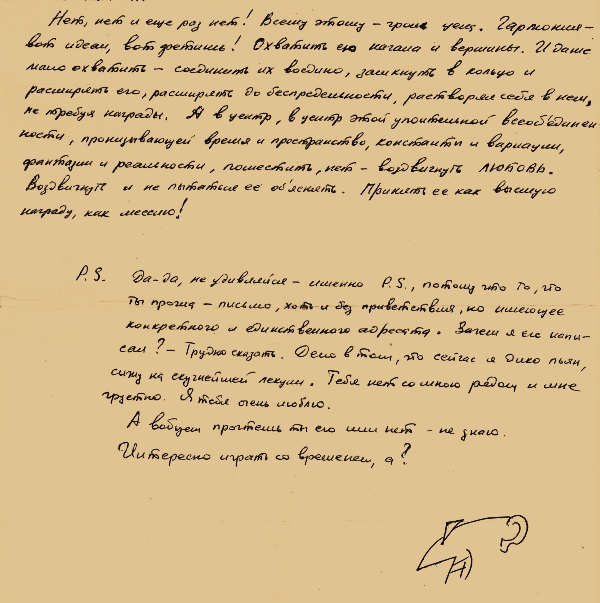 Нет, нет и еще раз нет! Всему этому – грош цена. Гармония –
вот идеал, вот фетиш! Охватить ею начала и вершины. И даже
мало охватить – соединить их воедино, замкнуть в кольцо и
расширять его, расширять до беспредельности, растворяя себя в нем,
не требуя награды. А в центр, в центр этой упоительной всеобъединен-
ности, пронизывающей время и пространство, константы и вариации,
фантазии и реальности, поместить, нет – воздвигнуть ЛЮБОВЬ.
Воздвигнуть и не пытаться ее об'яснять. Принять ее как высшую
награду, как мессию!
P.S. Да-да, не удивляйся – именно P.S., потому что то, что
ты прочла – письмо, хоть и без приветствия, но имеющее
конкретного и единственного адресата. Зачем я его напи-
сал? – Трудно сказать. Дело в том, что сейчас я дико пьян,
сижу на скучнейшей лекции. Тебя нет со мною рядом и мне
грустно. Я тебя очень люблю.
А вобщем прочтешь ты его или нет – не знаю.
Интересно играть со временем, а?